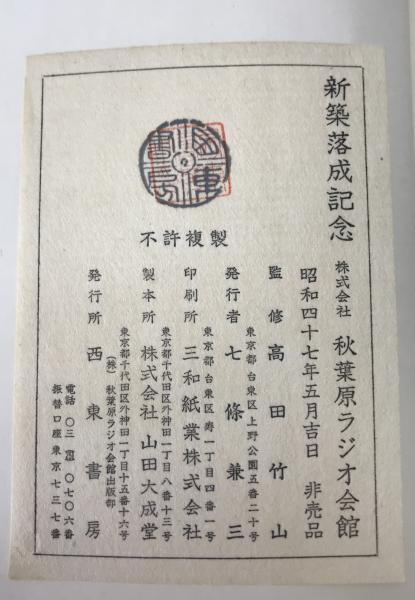 新築落成記念
株式会社 秋葉原ラジオ会館
昭和四十七年五月吉日 非売品
監修 高田竹山
東京都台東区上野公園五番二十号
発行者 七條兼三
東京都台東区寿一丁目四番一号
印刷所 三和紙業株式会社
東京都千代田区外神田一丁目八番十三号
製本所 株式会社 山田大成堂
東京都千代田区外神田一丁目十五番十六号
(株) 秋葉原ラジオ会館出版部
発行所 西東書房
電話 〇三 〇七〇六番
振替口座東京七三七番
不許複製